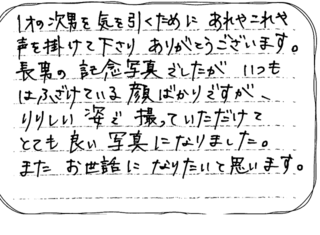 1才の次男を気を引くために あれやこれや
声を掛けて下さり ありがとうございます。
長男の 記念写真でしたが いつも
はふざけている 顔ばかりですが、
りりしい 姿で 撮っていただけて
とても 良い 写真に なりました。
また お世話に なりたいと 思います。